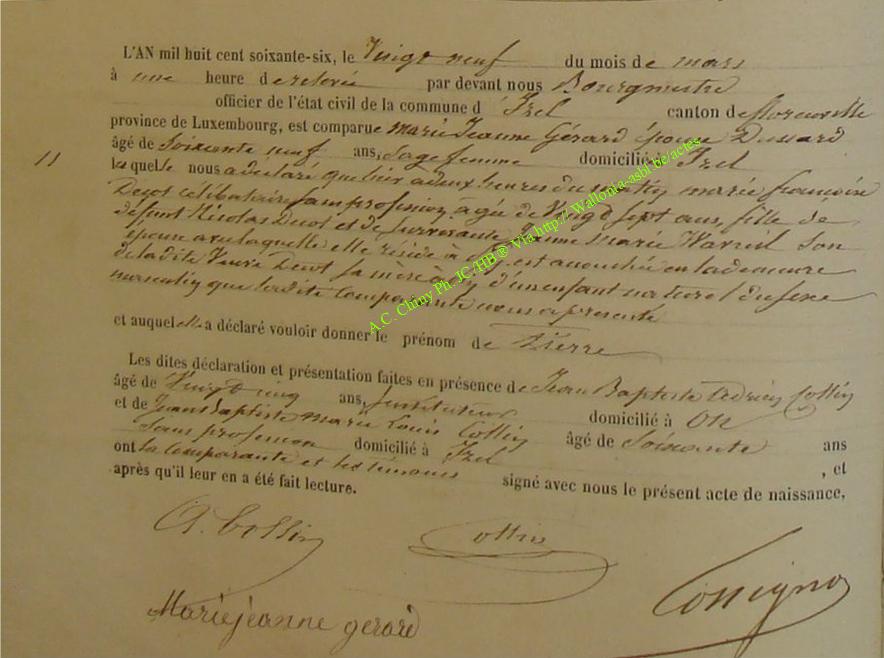 L'AN mil huit cent soixante-six, le Vingt neuf du mois de mars
à une heure de relevée par devant nous Bourgmestre
officier de l'état civil de la commune d' Izel canton de florenville
province de Luxembourg, est comparue marie Jeanne Gérard épouse Dussard
âgé de Soixante neuf ans, sage femme domicilié à Izel
11
laquelle nous a déclaré que hier à deux heures du matin marie françoise
Decot célibataire sans profession, âgée de Vingt sept ans, fille de
défunt Nicolas Decot et de survivante Jeanne Marie Warnil son
épouse avec laquelle elle réside à Izel est accouchée en la demeure
de la dite Veuve Decot sa mère à Izel d'un enfant naturel du sexe
masculin que la dite Comparante nous a présenté
et auquel elle a déclaré vouloir donner le prénom de Pierre
Les dites déclaration et présentation faites en présence de Jean Baptiste Adrien Collin
âgé de Vingt cinq ans, Instituteur domicilié à On
et de Jean Baptiste marie Louis Collin âgé de Soixante ans
Sans profession domicilié à Izel , et
ont la Comparante et les témoins signé avec nous le présent acte de naissance,
après qu'il leur en a été fait lecture.
A. Collin
Collin
Marie jeanne gerard
A.C. Chiny Ph. JC/HB ® Via http://-Wallonia-asbl.be/actes